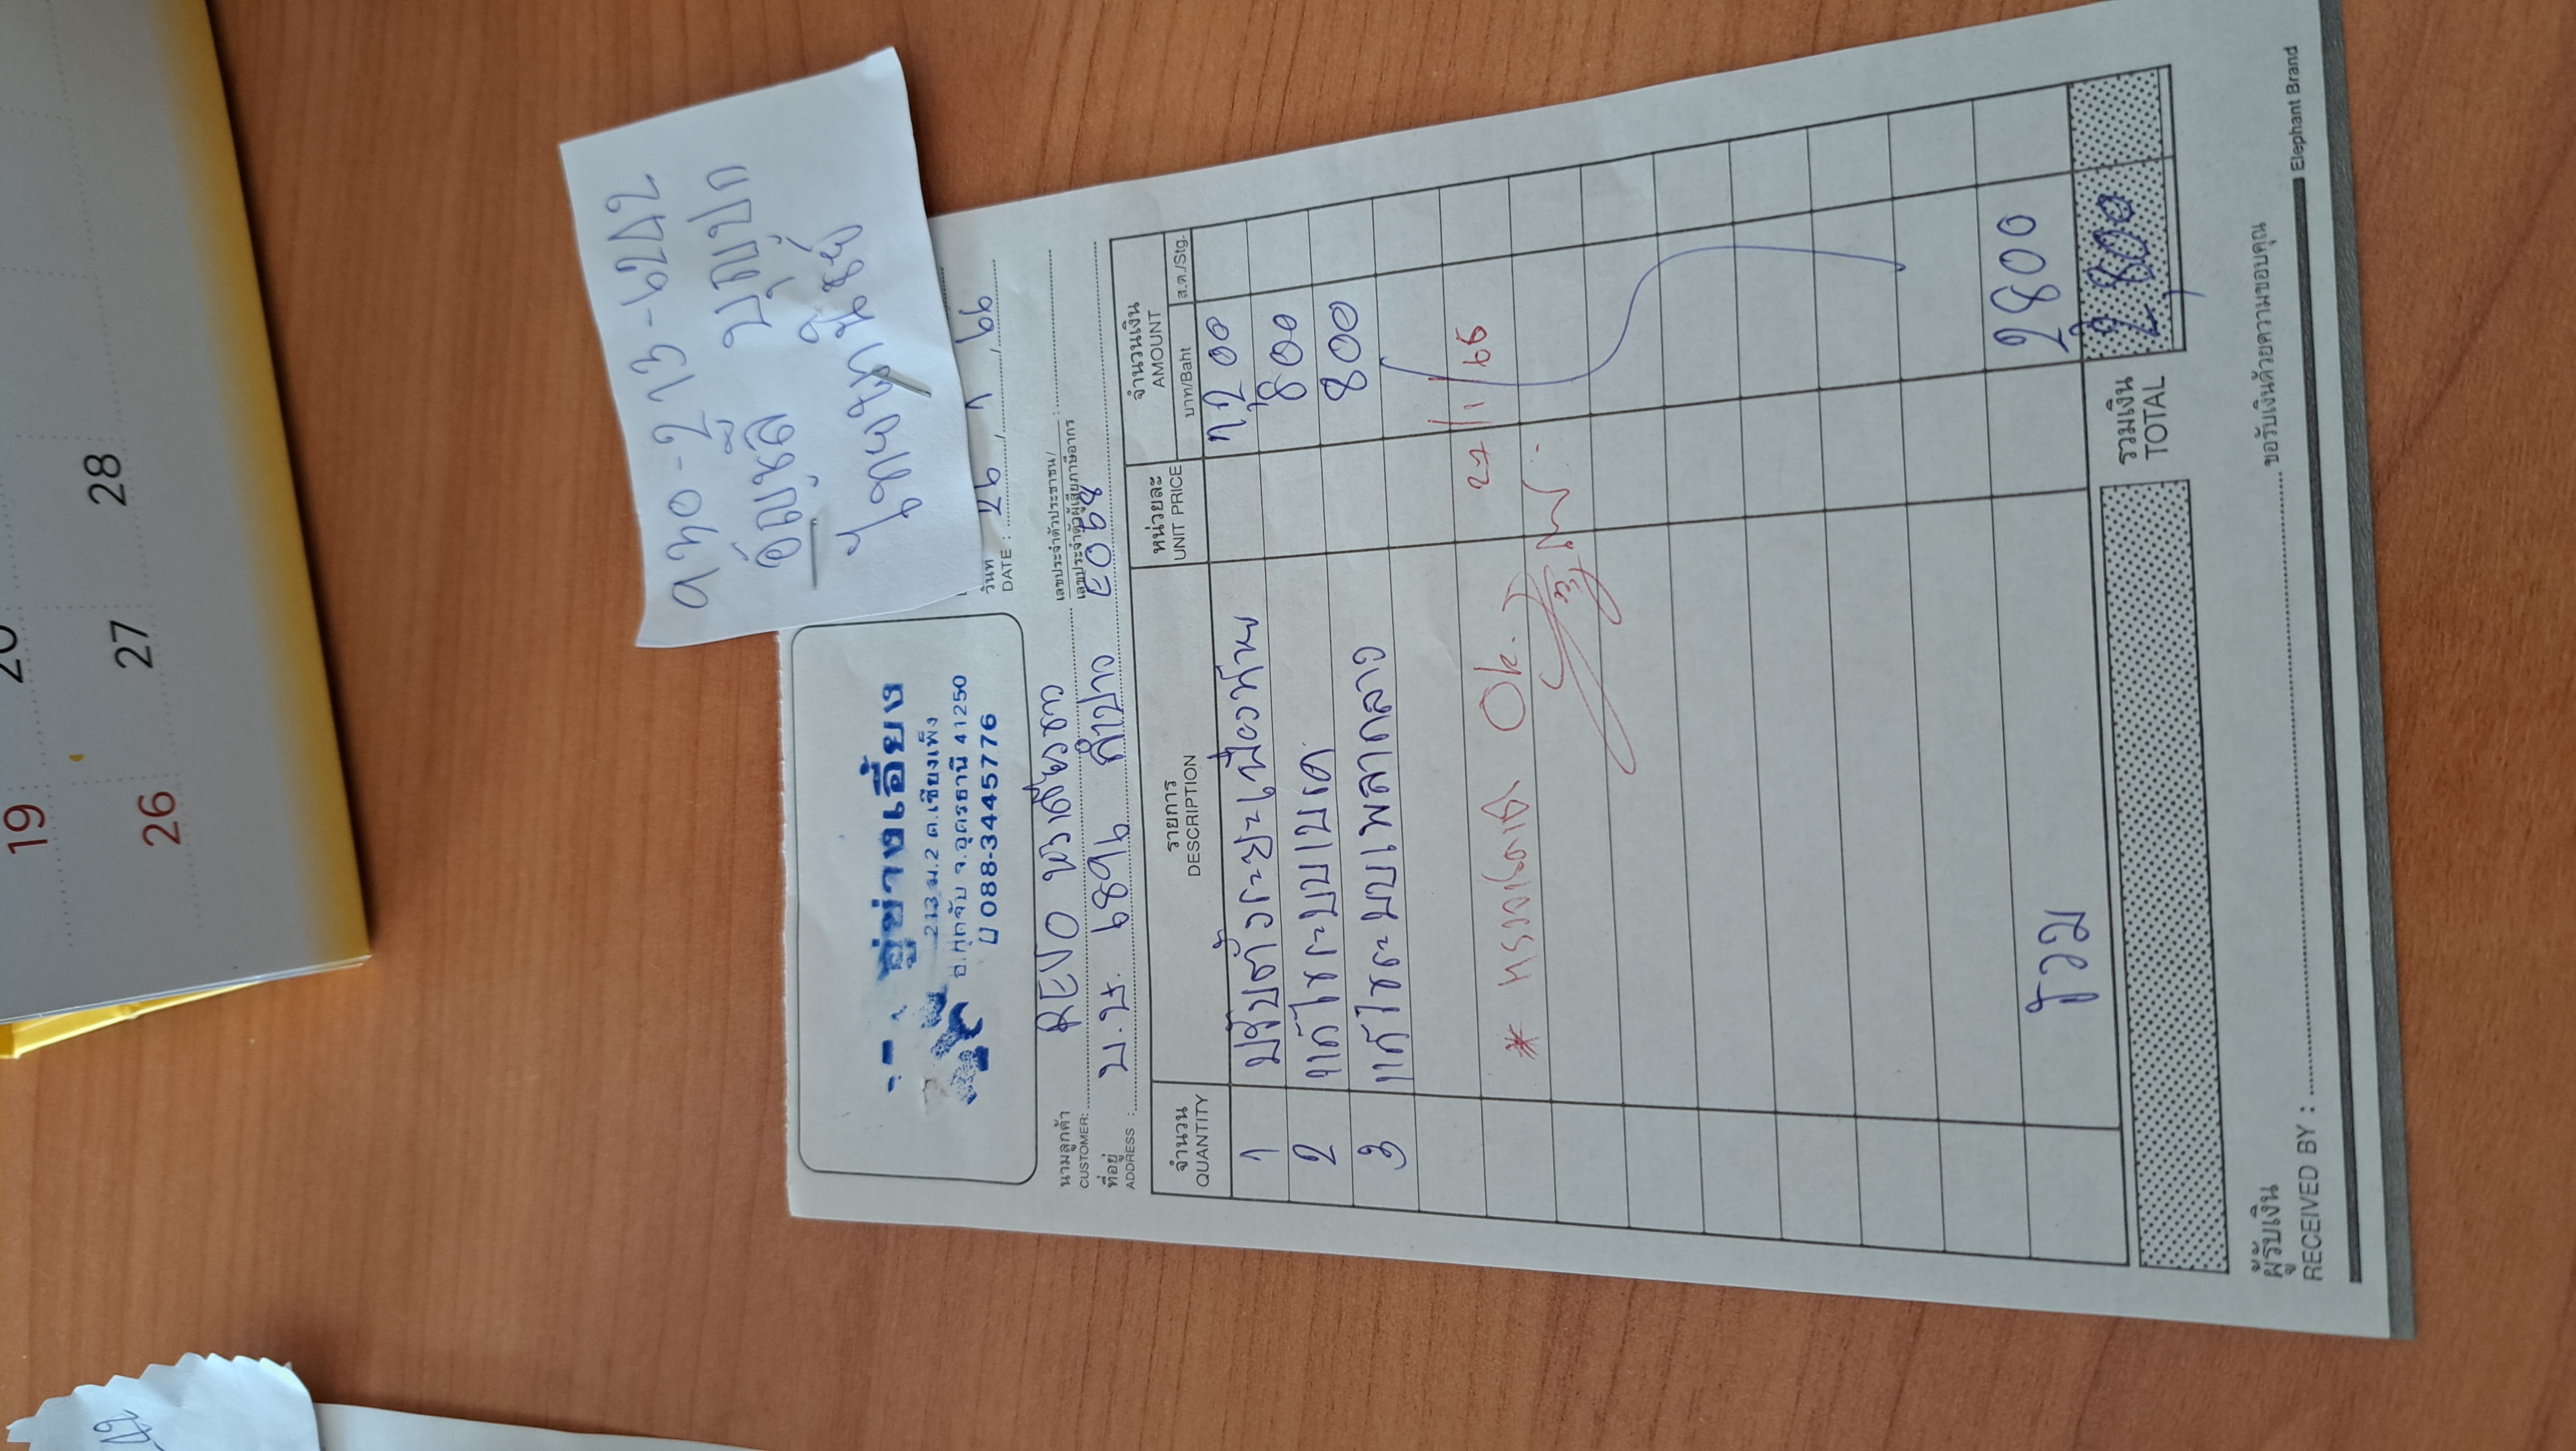 19
26 27 28
อู่ช่างเอี้ยง
213 ม.2 ต.เชียงเพ็ง
อ.กุดจับ จ.อุดรธานี 41250
088-3445776
อัญชลี บุญปก
วันที่
DATE : 26 / 1 / 66
นามลูกค้า
CUSTOMER: REVO
เลขประจำตัวประชาชน/
เลขประจำตัวผู้เสียภาษีอากร :
ที่อยู่
ADDRESS : บ.น. 6896 ลำปาว E054
จำนวน รายการ หน่วยละ จำนวนเงิน
QUANTITY DESCRIPTION UNIT PRICE AMOUNT
บาท/Baht ส.ต./Stg.
1 ปรับตั้งระยะเฟืองท้าย 1,200
2 แก้ไขระบบเบรค 800
3 แก้ไขระบบเพลากลาง 800
27/1/66
* ตรวจเช็ค Ok.
รวม 2800
รวมเงิน
TOTAL 2,800
ผู้รับเงิน
RECEIVED BY : ขอรับเงินด้วยความขอบคุณ
Elephant Brand